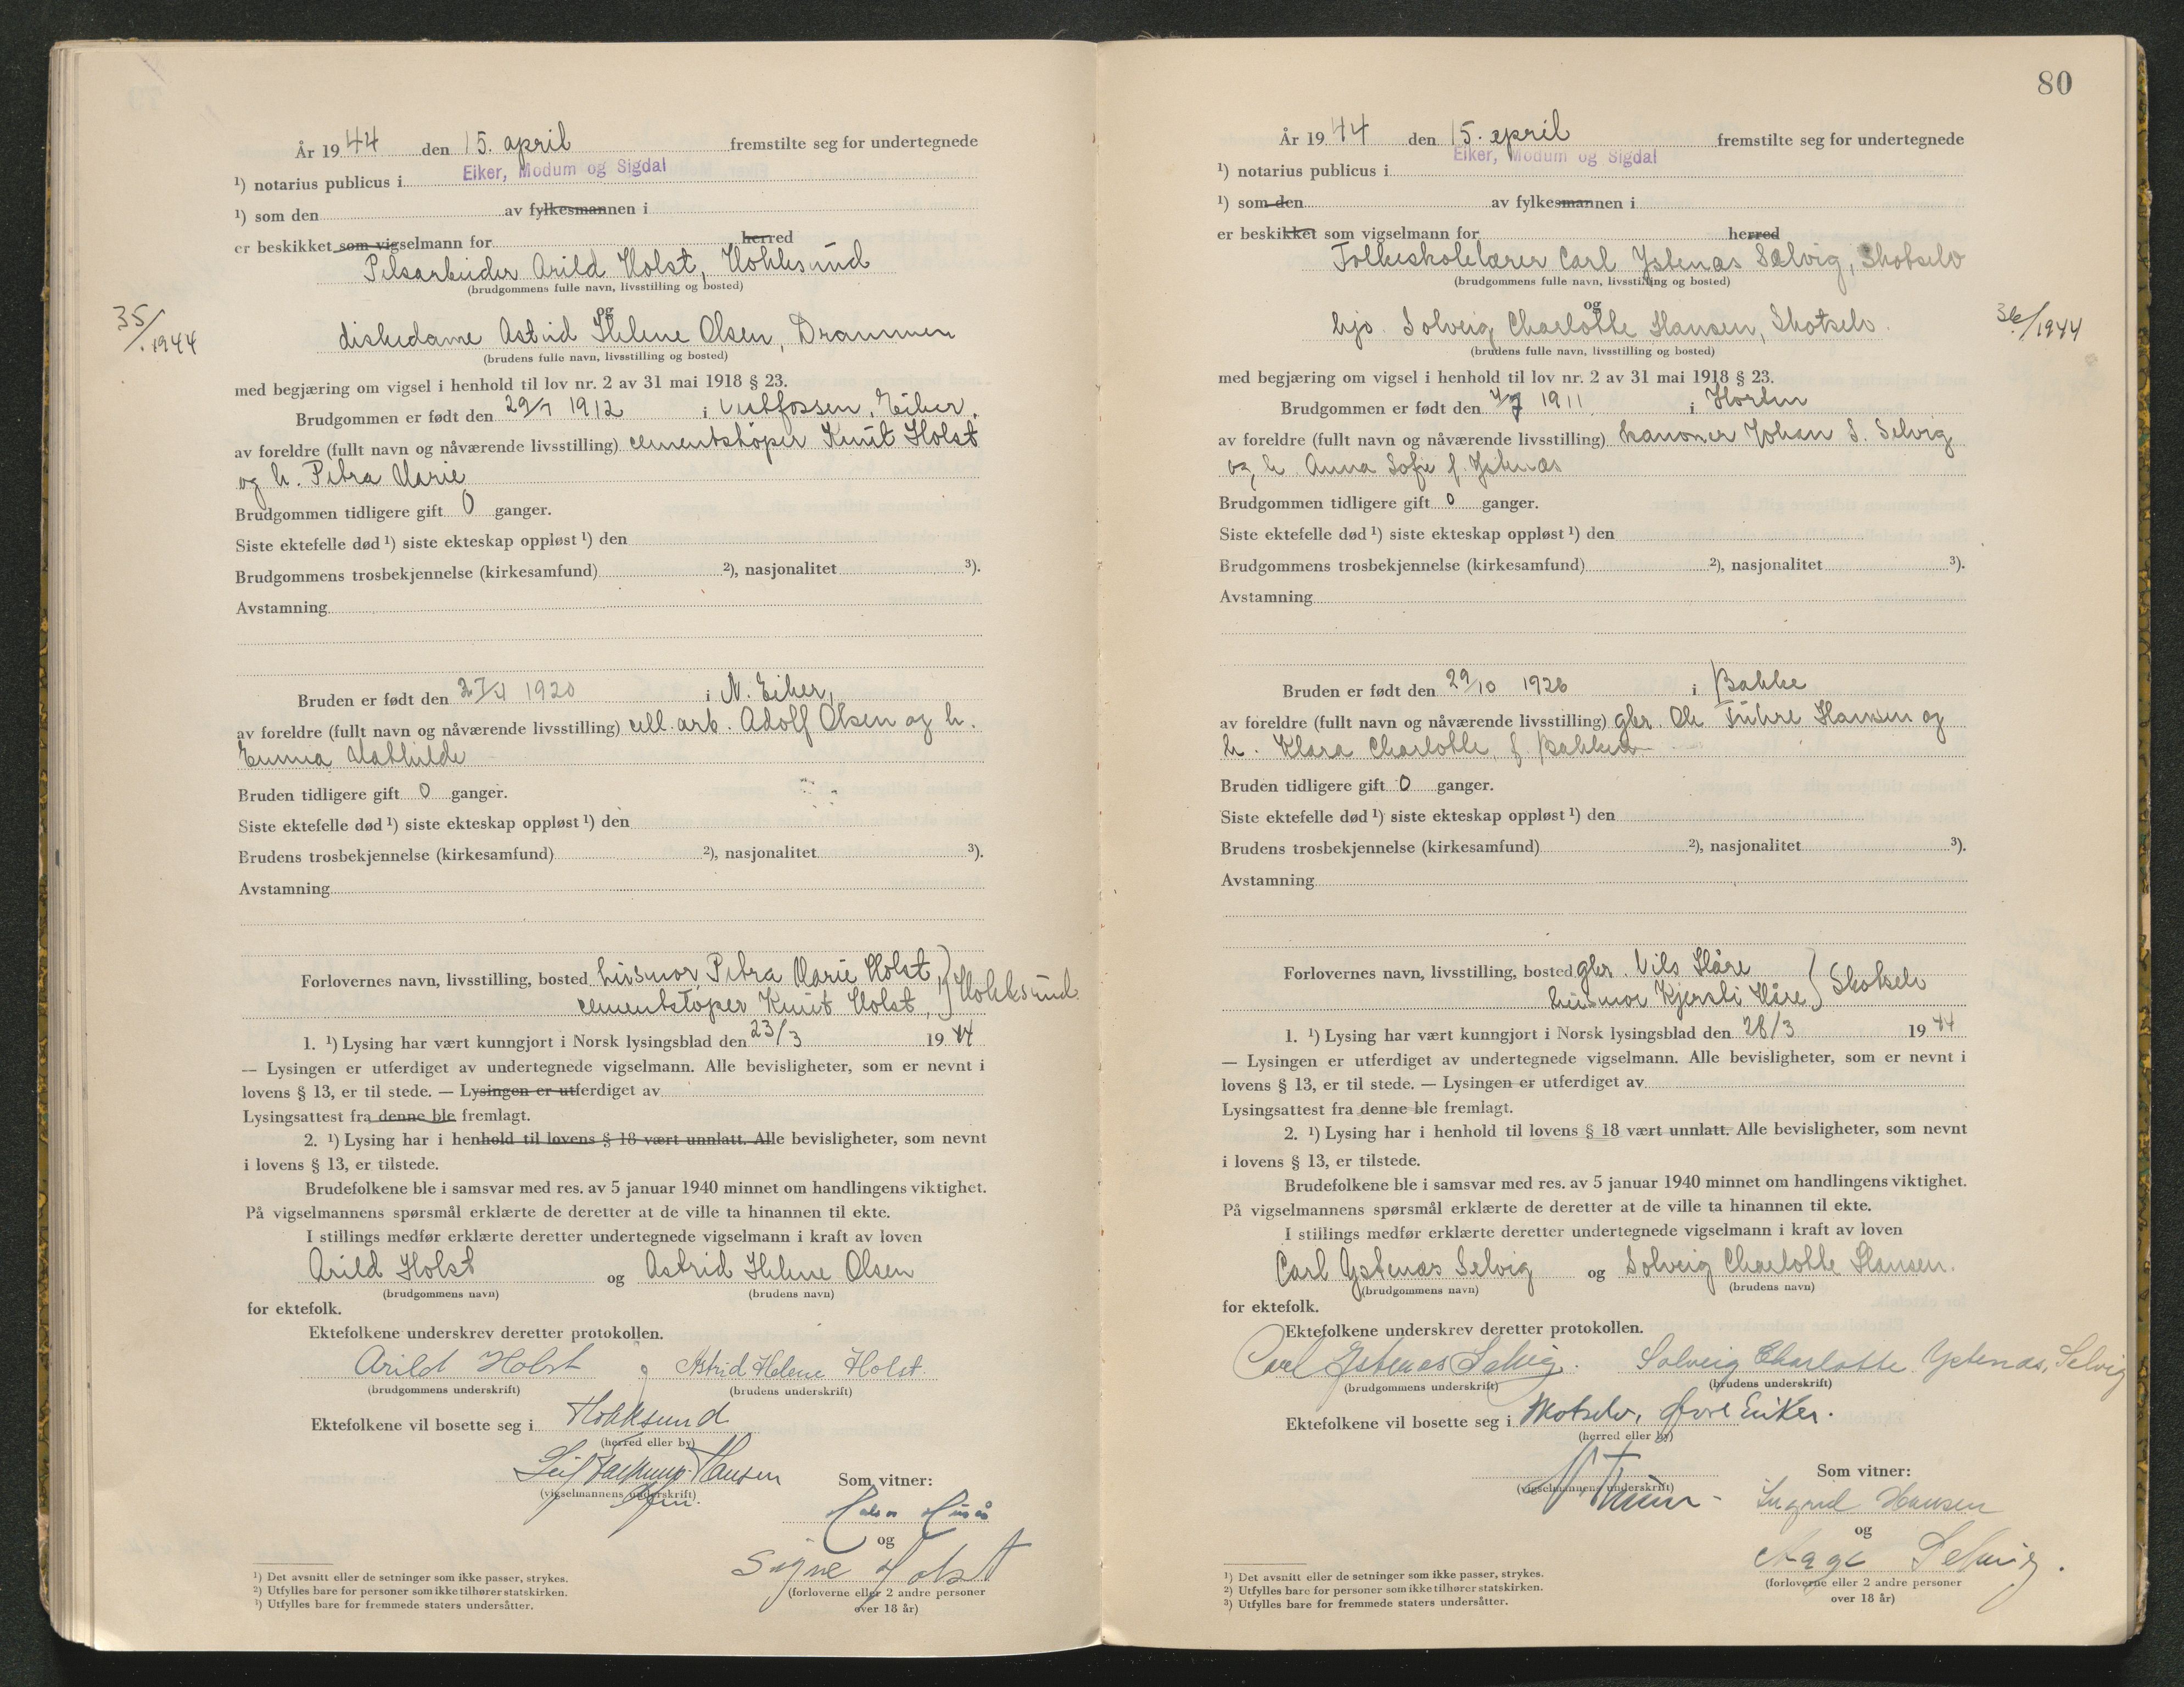 År 1944 den 15. april fremstilte seg for undertegnede
¹) notarius publicus i Eiker, Modum og Sigdal
¹) som den av fylkesmannen i
er beskikket som vigselmann for herred
Pelsarbeider Arild Holst, Hokksund
(brudgommens fulle navn, livsstilling og bosted)
og
35/1944
diskedame Astrid Helene Olsen, Drammen
(brudens fulle navn, livsstilling og bosted)
med begjæring om vigsel i henhold til lov nr. 2 av 31 mai 1918 § 23.
Brudgommen er født den 29/7 1912 i Vestfossen, Eiker,
av foreldre (fullt navn og nåværende livsstilling) cementstøper Knut Holst
og h. Petra Marie
Brudgommen tidligere gift 0 ganger.
Siste ektefelle død ¹) siste ekteskap oppløst ¹) den
Brudgommens trosbekjennelse (kirkesamfund) ²), nasjonalitet ³).
Avstamning
Bruden er født den 27/4 1920 i N. Eiker,
av foreldre (fullt navn og nåværende livsstilling) cell.arb. Adolf Olsen og h.
Emma Mathilde
Bruden tidligere gift 0 ganger.
Siste ektefelle død ¹) siste ekteskap oppløst ¹) den
Brudens trosbekjennelse (kirkesamfund) ²), nasjonalitet ³).
Avstamning
Forlovernes navn, livsstilling, bosted husmor Petra Marie Holst, } Hokksund
cementstøper Knut Holst,
1. ¹) Lysing har vært kunngjort i Norsk lysingsblad den 23/3 1944
— Lysingen er utferdiget av undertegnede vigselmann. Alle bevisligheter, som er nevnt i
lovens § 13, er til stede. — Lysingen er utferdiget av
Lysingsattest fra denne ble fremlagt.
2. ¹) Lysing har i henhold til lovens § 18 vært unnlatt. Alle bevisligheter, som nevnt
i lovens § 13, er tilstede.
Brudefolkene ble i samsvar med res. av 5 januar 1940 minnet om handlingens viktighet.
På vigselmannens spørsmål erklærte de deretter at de ville ta hinannen til ekte.
I stillings medfør erklærte deretter undertegnede vigselmann i kraft av loven
Arild Holst og Astrid Helene Olsen
(brudgommens navn) (brudens navn)
for ektefolk.
Ektefolkene underskrev deretter protokollen.
Arild Holst og Astrid Helene Holst.
(brudgommens underskrift) (brudens underskrift)
Ektefolkene vil bosette seg i Hokksund
(herred eller by)
Leif Hansen
Som vitner:
(vigselmannens underskrift)
og
Signe Holst
(forloverne eller 2 andre personer
over 18 år)
¹) Det avsnitt eller de setninger som ikke passer, strykes.
²) Utfylles bare for personer som ikke tilhører statskirken.
³) Utfylles bare for fremmede staters undersåtter.
80
År 1944 den 15. april fremstilte seg for undertegnede
¹) notarius publicus i Eiker, Modum og Sigdal
¹) som den av fylkesmannen i
er beskikket som vigselmann for herred
Folkeskolelærer Carl Ystenæs Selvig, Skotselv
(brudgommens fulle navn, livsstilling og bosted)
og
hjv. Solveig Charlotte Hansen, Skotselv.
36/1944
(brudens fulle navn, livsstilling og bosted)
med begjæring om vigsel i henhold til lov nr. 2 av 31 mai 1918 § 23.
Brudgommen er født den 4/7 1911 i Horten
av foreldre (fullt navn og nåværende livsstilling) kanoner Johan S. Selvig
og h. Anna Sofie f. Ystenæs
Brudgommen tidligere gift 0 ganger.
Siste ektefelle død ¹) siste ekteskap oppløst ¹) den
Brudgommens trosbekjennelse (kirkesamfund) ²), nasjonalitet ³).
Avstamning
Bruden er født den 29/10 1926 i Bakke
av foreldre (fullt navn og nåværende livsstilling) gbr. Ole Hansen og
h. Klara Charlotte, f. Bakken
Bruden tidligere gift 0 ganger.
Siste ektefelle død ¹) siste ekteskap oppløst ¹) den
Brudens trosbekjennelse (kirkesamfund) ²), nasjonalitet ³).
Avstamning
Forlovernes navn, livsstilling, bosted gbr. Nils Håre } Skotselv
husmor Kjersti Håre
1. ¹) Lysing har vært kunngjort i Norsk lysingsblad den 28/3 1944
— Lysingen er utferdiget av undertegnede vigselmann. Alle bevisligheter, som er nevnt i
lovens § 13, er til stede. — Lysingen er utferdiget av
Lysingsattest fra denne ble fremlagt.
2. ¹) Lysing har i henhold til lovens § 18 vært unnlatt. Alle bevisligheter, som nevnt
i lovens § 13, er tilstede.
Brudefolkene ble i samsvar med res. av 5 januar 1940 minnet om handlingens viktighet.
På vigselmannens spørsmål erklærte de deretter at de ville ta hinannen til ekte.
I stillings medfør erklærte deretter undertegnede vigselmann i kraft av loven
Carl Ystenæs Selvig og Solveig Charlotte Hansen.
(brudgommens navn) (brudens navn)
for ektefolk.
Ektefolkene underskrev deretter protokollen.
Carl Ystenæs Selvig. Solveig Charlotte Ystenæs, Selvig
(brudgommens underskrift) (brudens underskrift)
Ektefolkene vil bosette seg i Skotselv, Øvre Eiker.
(herred eller by)
Som vitner:
(vigselmannens underskrift)
Ingrid Hansen
og
Aage Selvig.
(forloverne eller 2 andre personer
over 18 år)
¹) Det avsnitt eller de setninger som ikke passer, strykes.
²) Utfylles bare for personer som ikke tilhører statskirken.
³) Utfylles bare for fremmede staters undersåtter.